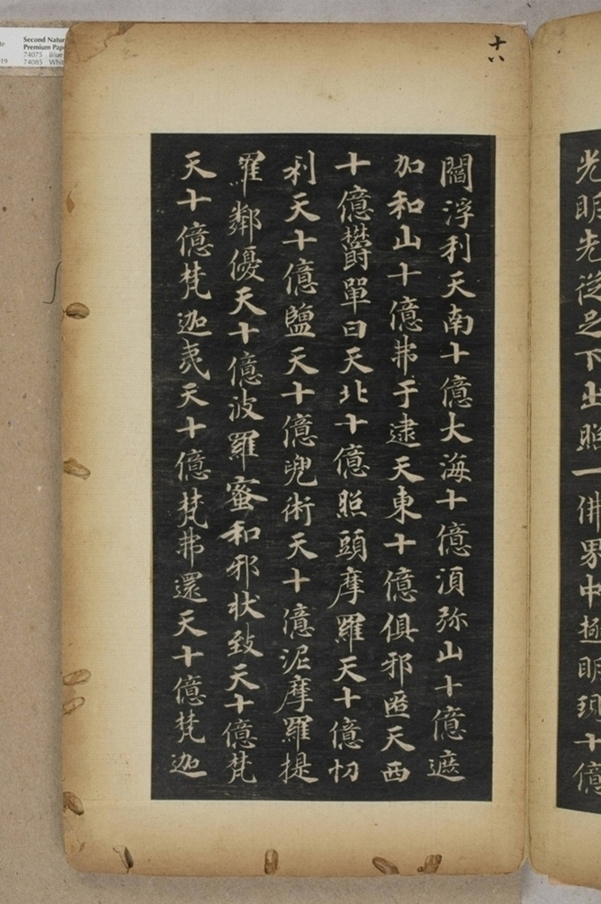 光明光從足下出照一佛界中極明現十億
閻浮利天南十億大海十億湏弥山十億遮
加和山十億弗于逮天東十億俱邪匿天西
十億欝單曰天北十億照頭摩羅天十億忉
利天十億鹽天十億兜術天十億泥摩羅提
羅鄰優天十億波羅蜜和邪状致天十億梵
天十億梵迦夷天十億梵弗還天十億梵迦
十八
Second Natur
Premium Pap
74075 Blue
74085 Whit
19